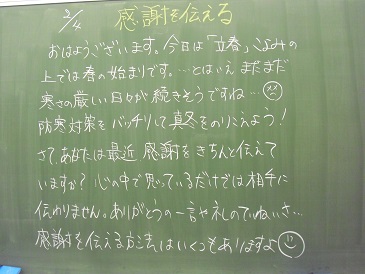 2/4 感謝を伝える
おはようございます。今日は「立春」こよみの
上では春の始まりです。…とはいえまだまだ
寒さの厳しい日々が続きそうですね…
防寒対策をバッチリして真冬をのりこえよう!
さて、あなたは最近感謝をきちんと伝えて
いますか?心の中で思っているだけでは相手に
伝わりません。ありがとうの一言や礼のていねいさ…
感謝を伝える方法はいくつもありますよ